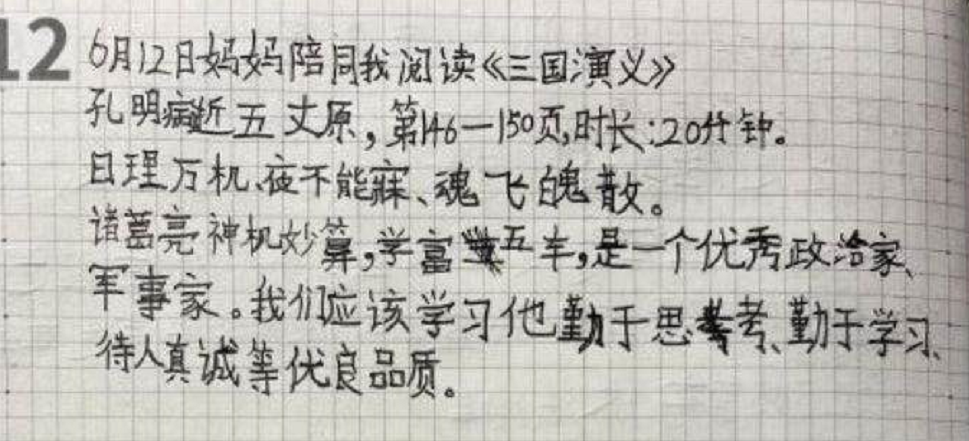 12
6月12日妈妈陪同我阅读《三国演义》
孔明病逝五丈原,第146一150页,时长:20分钟。
日理万机、夜不能寐、魂飞魄散。
诸葛亮神机妙算,学富五车,是一个优秀政治家、
军事家。我们应该学习他勤于思考、勤于学习、
待人真诚等优良品质。